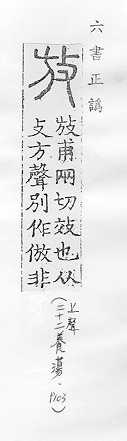 六書正譌
放
放甫兩切效也从
攴方聲別作倣非
(上聲
二十二養蕩.P103)